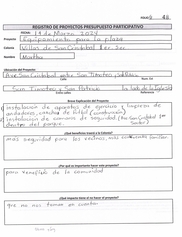 FOLIO: 48
REGISTRO DE PROYECTOS PRESUPUESTO PARTICIPATIVO
FECHA: 19 de Marzo 2024
Proyecto Equipamiento para la plaza
Colonia Villas de San Cristobal 1er. Sec.
Nombre Martha
Ubicación del Proyecto
Ave San Cristobal entre San Timoteo y
Calle Num. Ext
San Timoteo y San a lado de la Iglesia
Entre calles Referencia
Breve Explicación del Proyecto
instalacion de aparatos de ejercicio y limpieza de
andadores, cancha de futbol (construcción)
instalacion de camaras de seguridad. (Ave San Cristobal 1er
dentro del parque. Sector)
¿Qué beneficio traerá a la Colonia?
mas seguridad para los vecinos, mas familiar.
¿Por qué es importante hacer este proyecto?
para beneficio de la comunidad
¿Qué impacto tiene si no se hace el proyecto?
que no nos toman en cuenta